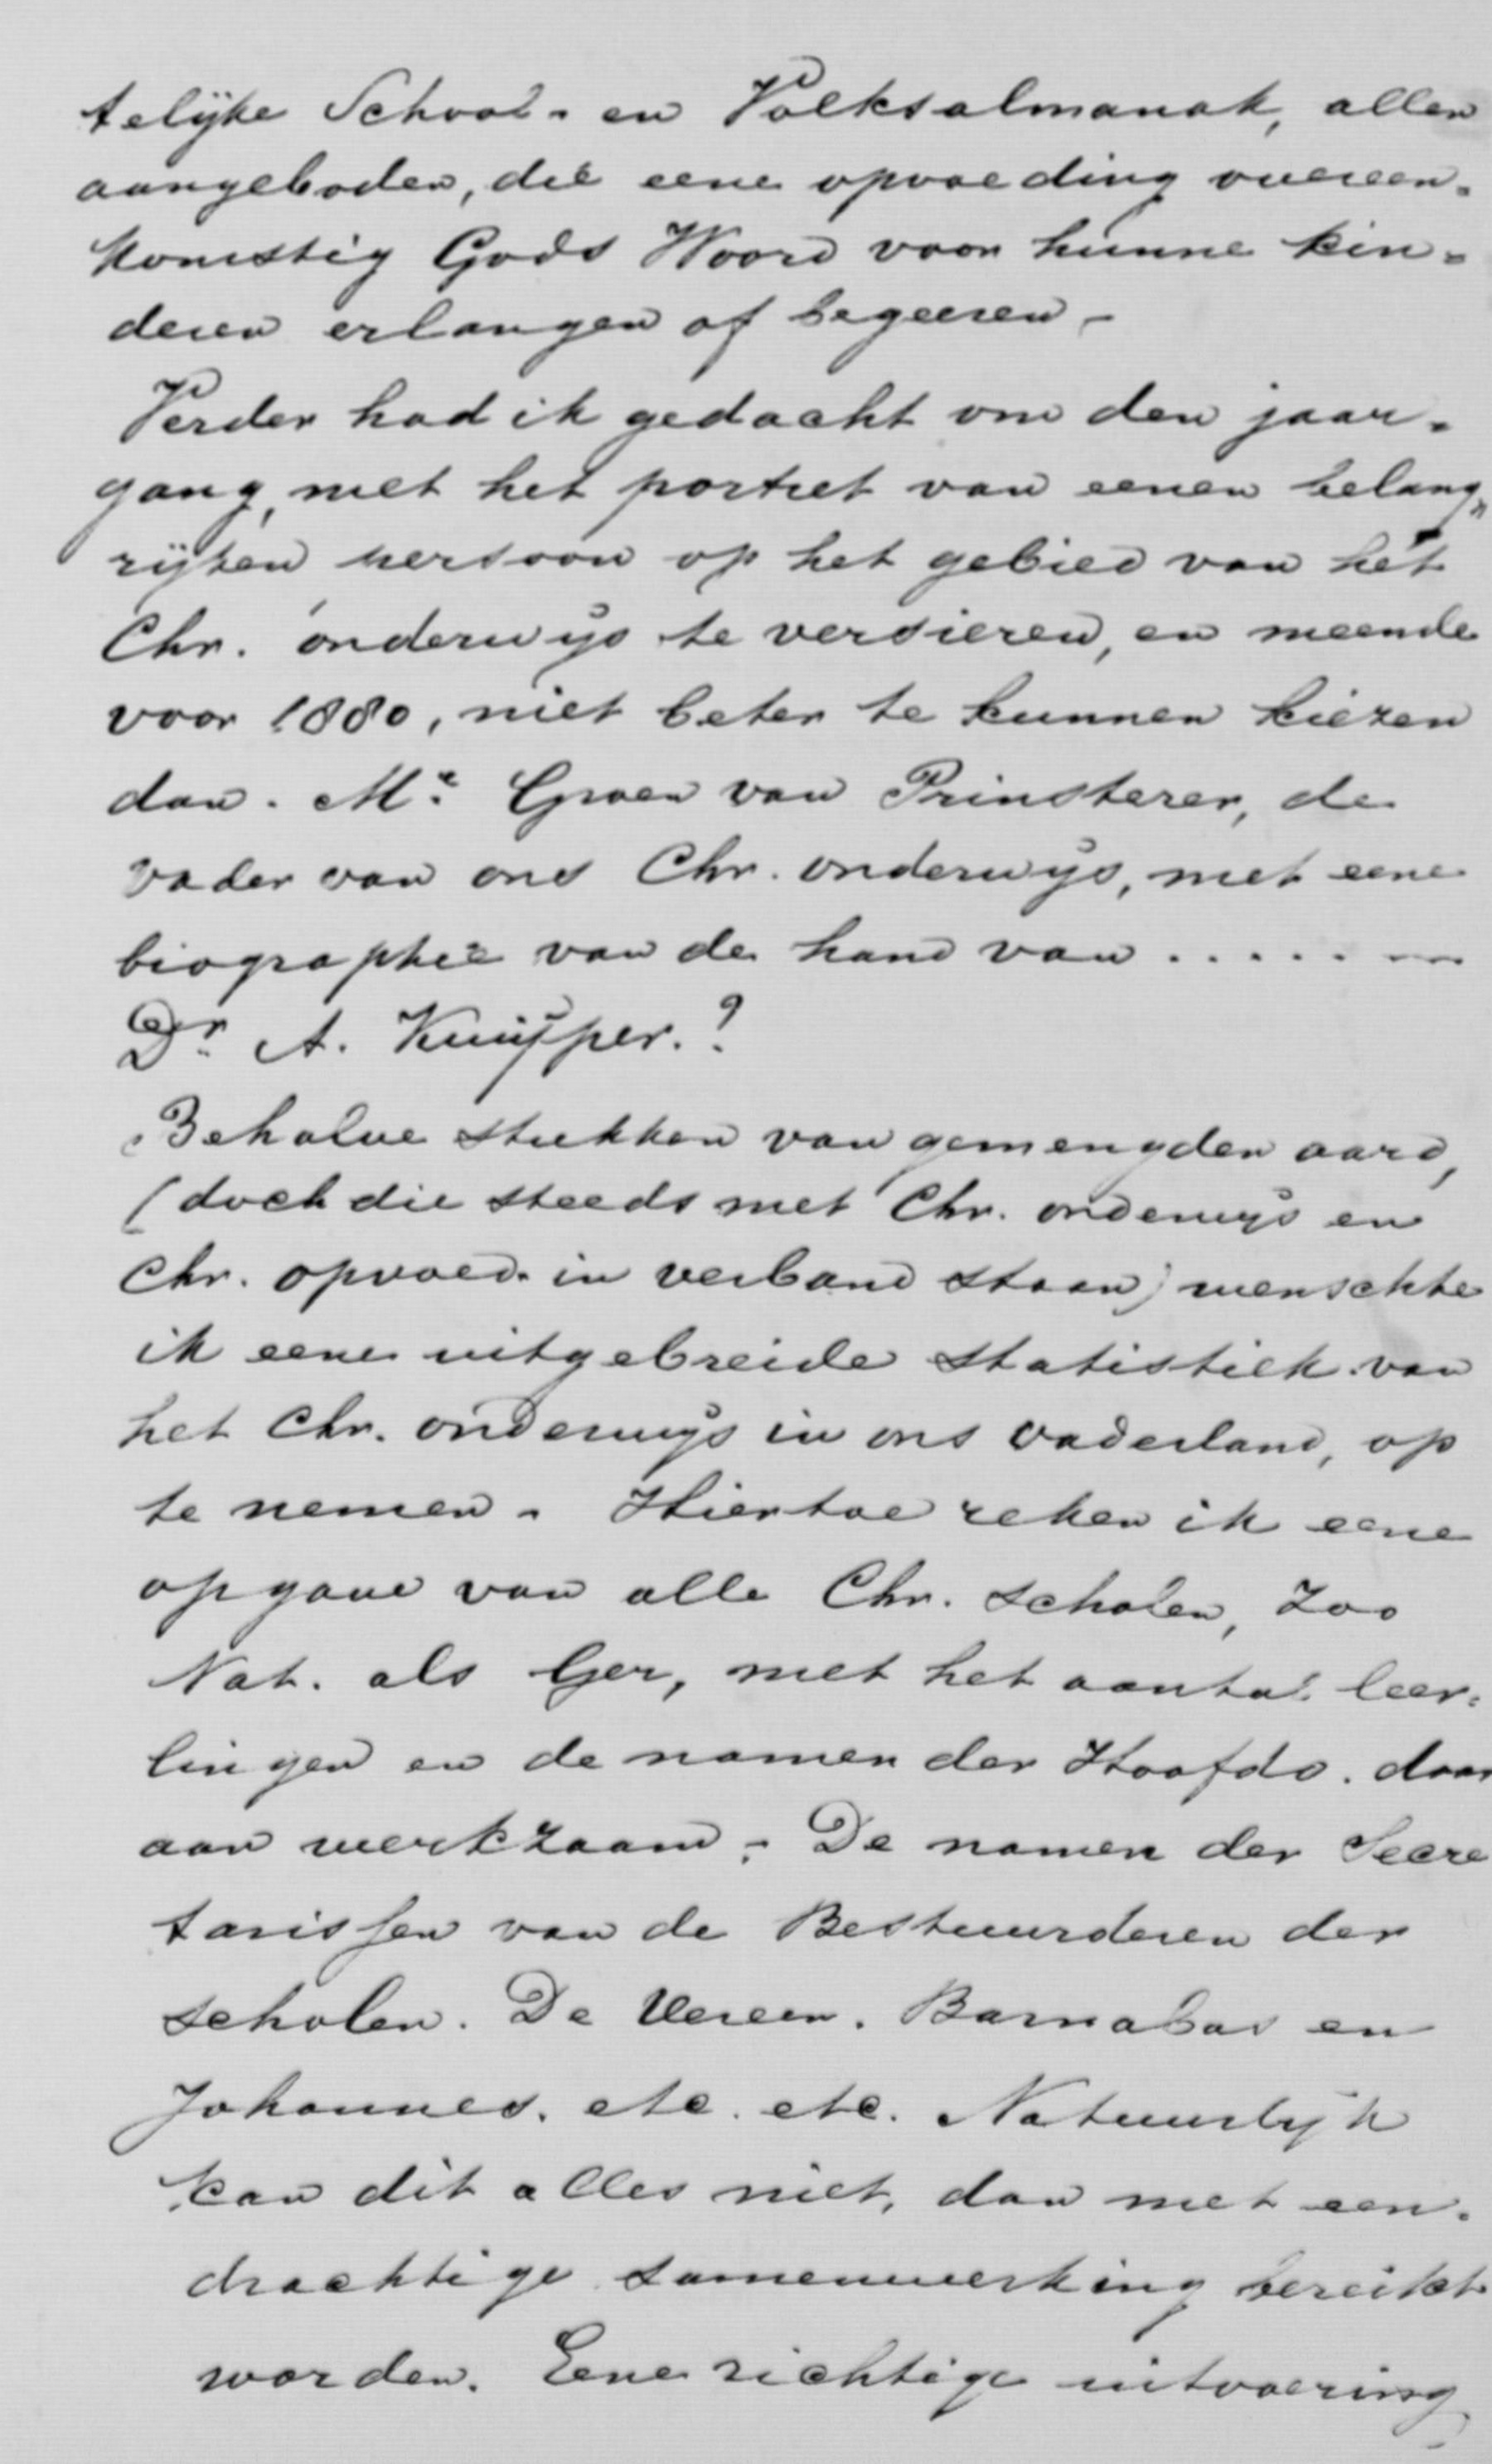 telijke School- en Volksalmanak, allen
aangeboden, die eene opvoeding overeen-
komstig Gods Woord voor hunne kin-
deren erlangen of begeeren -
Verder had ik gedacht om den jaar-
gang, met het portret van eenen belang-
rijken persoon op het gebied van het
Chr. onderwijs te versieren, en meende
voor 1880, niet beter te kunnen kiezen
dan. Mr. Groen van Prinsterer, de
vader van ons Chr. onderwijs, met eene
biographie van de hand van ......
Dr. A. Kuijper.?
Behalve stukken van gemengden aard,
(doch die steeds met Chr. onderwijs en
Chr. opvoed. in verband staan) wenschte
ik eene uitgebreide statistiek van
het Chr. onderwijs in ons vaderland, op
te nemen. Hiertoe reken ik eene
opgave van alle Chr. scholen, zoo
Nat. als Ger, met het aantal leer-
lingen en de namen der Hoofds. daar
aan werkzaam. De namen der Secre
tarissen van de Bestuurderen der
scholen. De Vereen. Barnabas en
Johannes. etc. etc. Natuurlijk
kan dit alles niet, dan met een-
drachtige samenwerking bereikt
worden. Eene richtige uitvoering